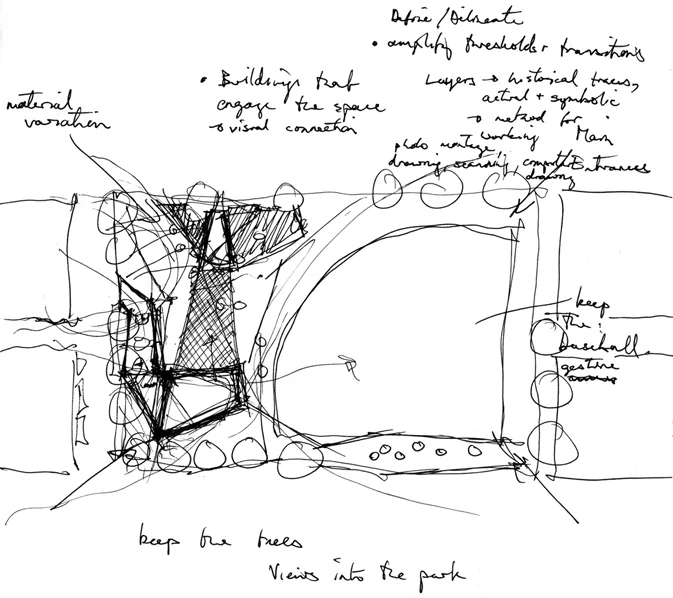 Define / Delineate
• amplify thresholds + transitions
• Buildings that
engage the space
→ visual connection
Layers → historical traces,
actual + symbolic
→ method for
working
photo montage,
drawing, scanning, computer
drawing
Main
Entrances
material
variation
keep
the
baseball
gesture
keep the trees
Views into the park